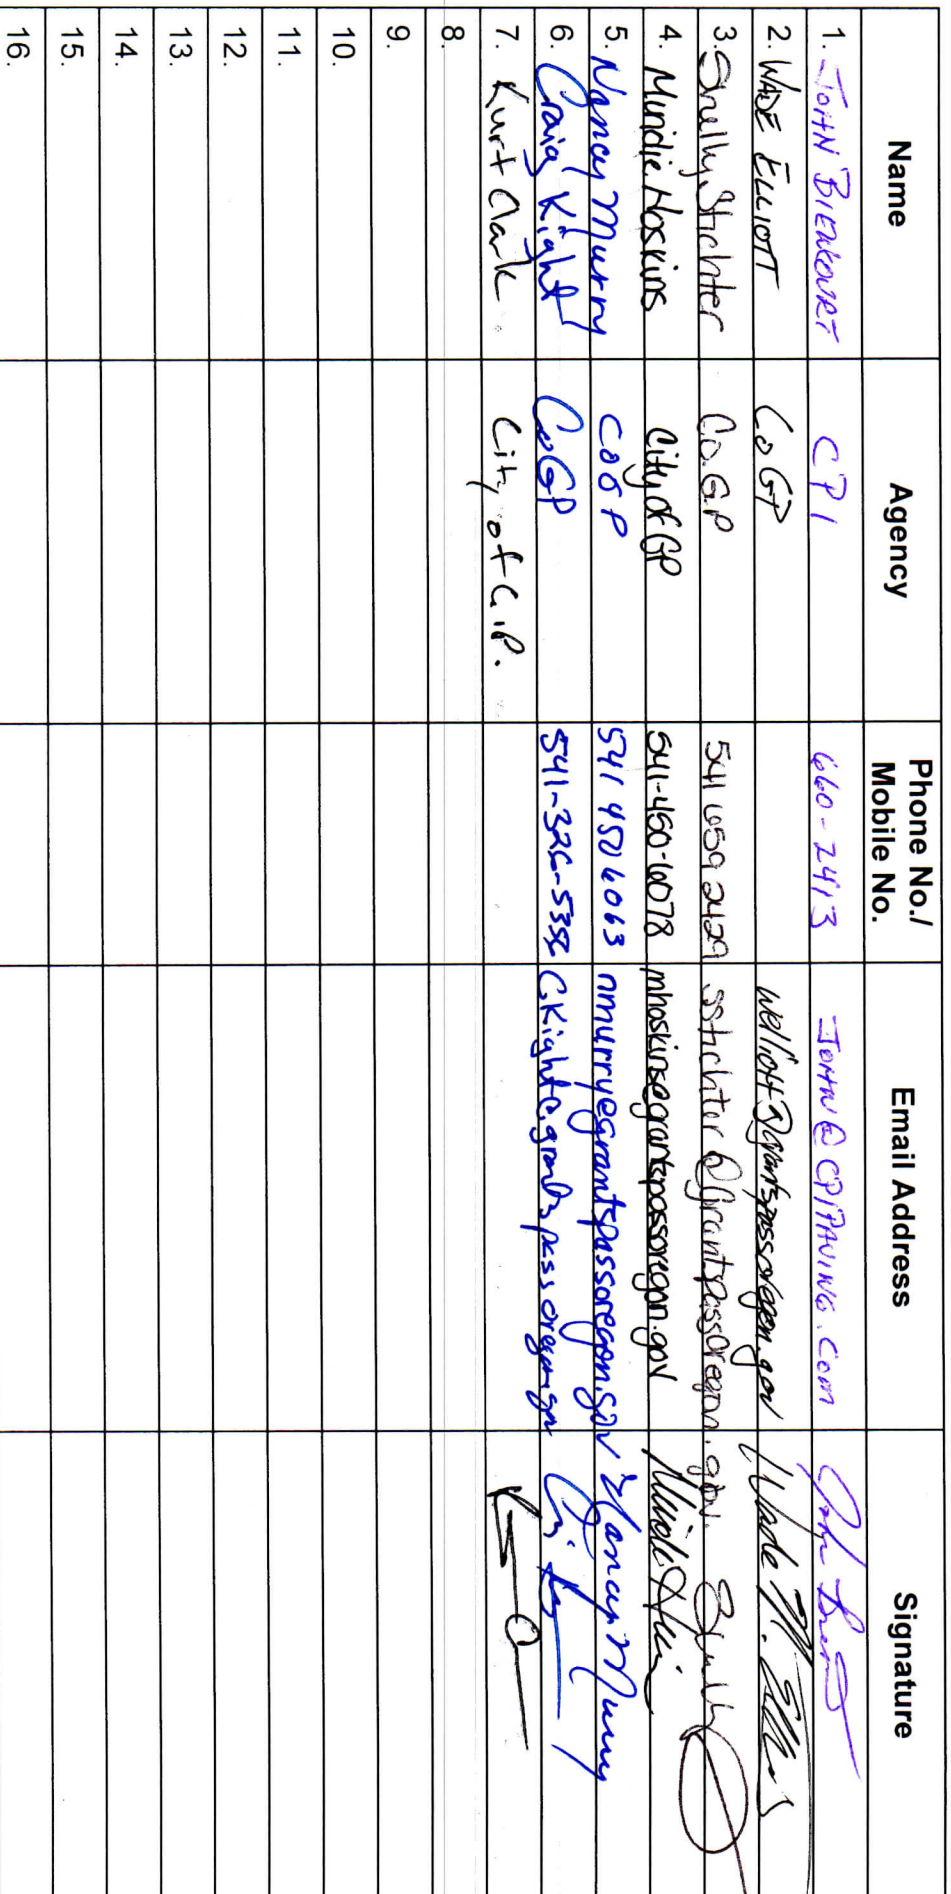 Name Agency Phone No./ Mobile No. Email Address Signature
1. JOHN BIENCOURT CPI 660-2413 JOHN@CPIPAVING.COM
2. WADE ELLIOTT CoGP welliott@grantspassoregon.gov Wade M. Elliott
3. Shelly Stichter Co.G.P 541 659 2429 sstichter@grantspassoregon.gov.
4. Mundie Hoskins City of GP 541-450-6078 mhoskins@grantspassoregon.gov
5. Nancy Murry COGP 541 450 6063 nmurry@grantspassoregon.gov Nancy Murry
6. Craig Kight CoGP 541-326- CKight@grantspassoregon.gov
7. Kurt Clark City of G.P.
8.
9.
10.
11.
12.
13.
14.
15.
16.